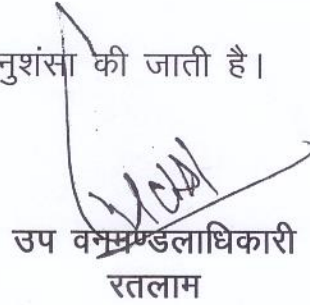 नुशंसा की जाती है।
उप वनमण्डलाधिकारी
रतलाम